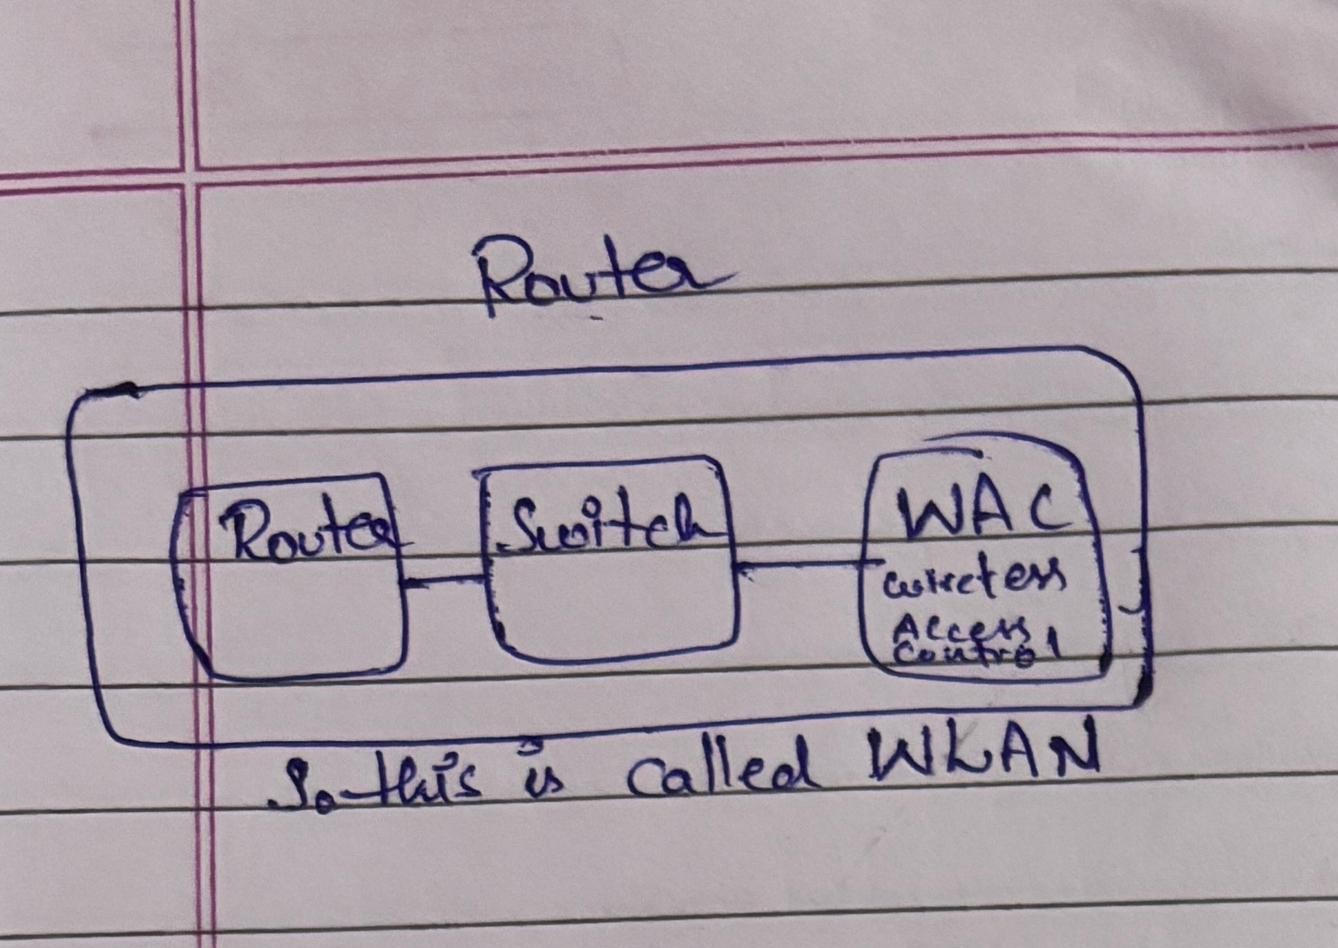 Router
Router
Switch
WAC
wireless
Access
Control
So this is called WLAN